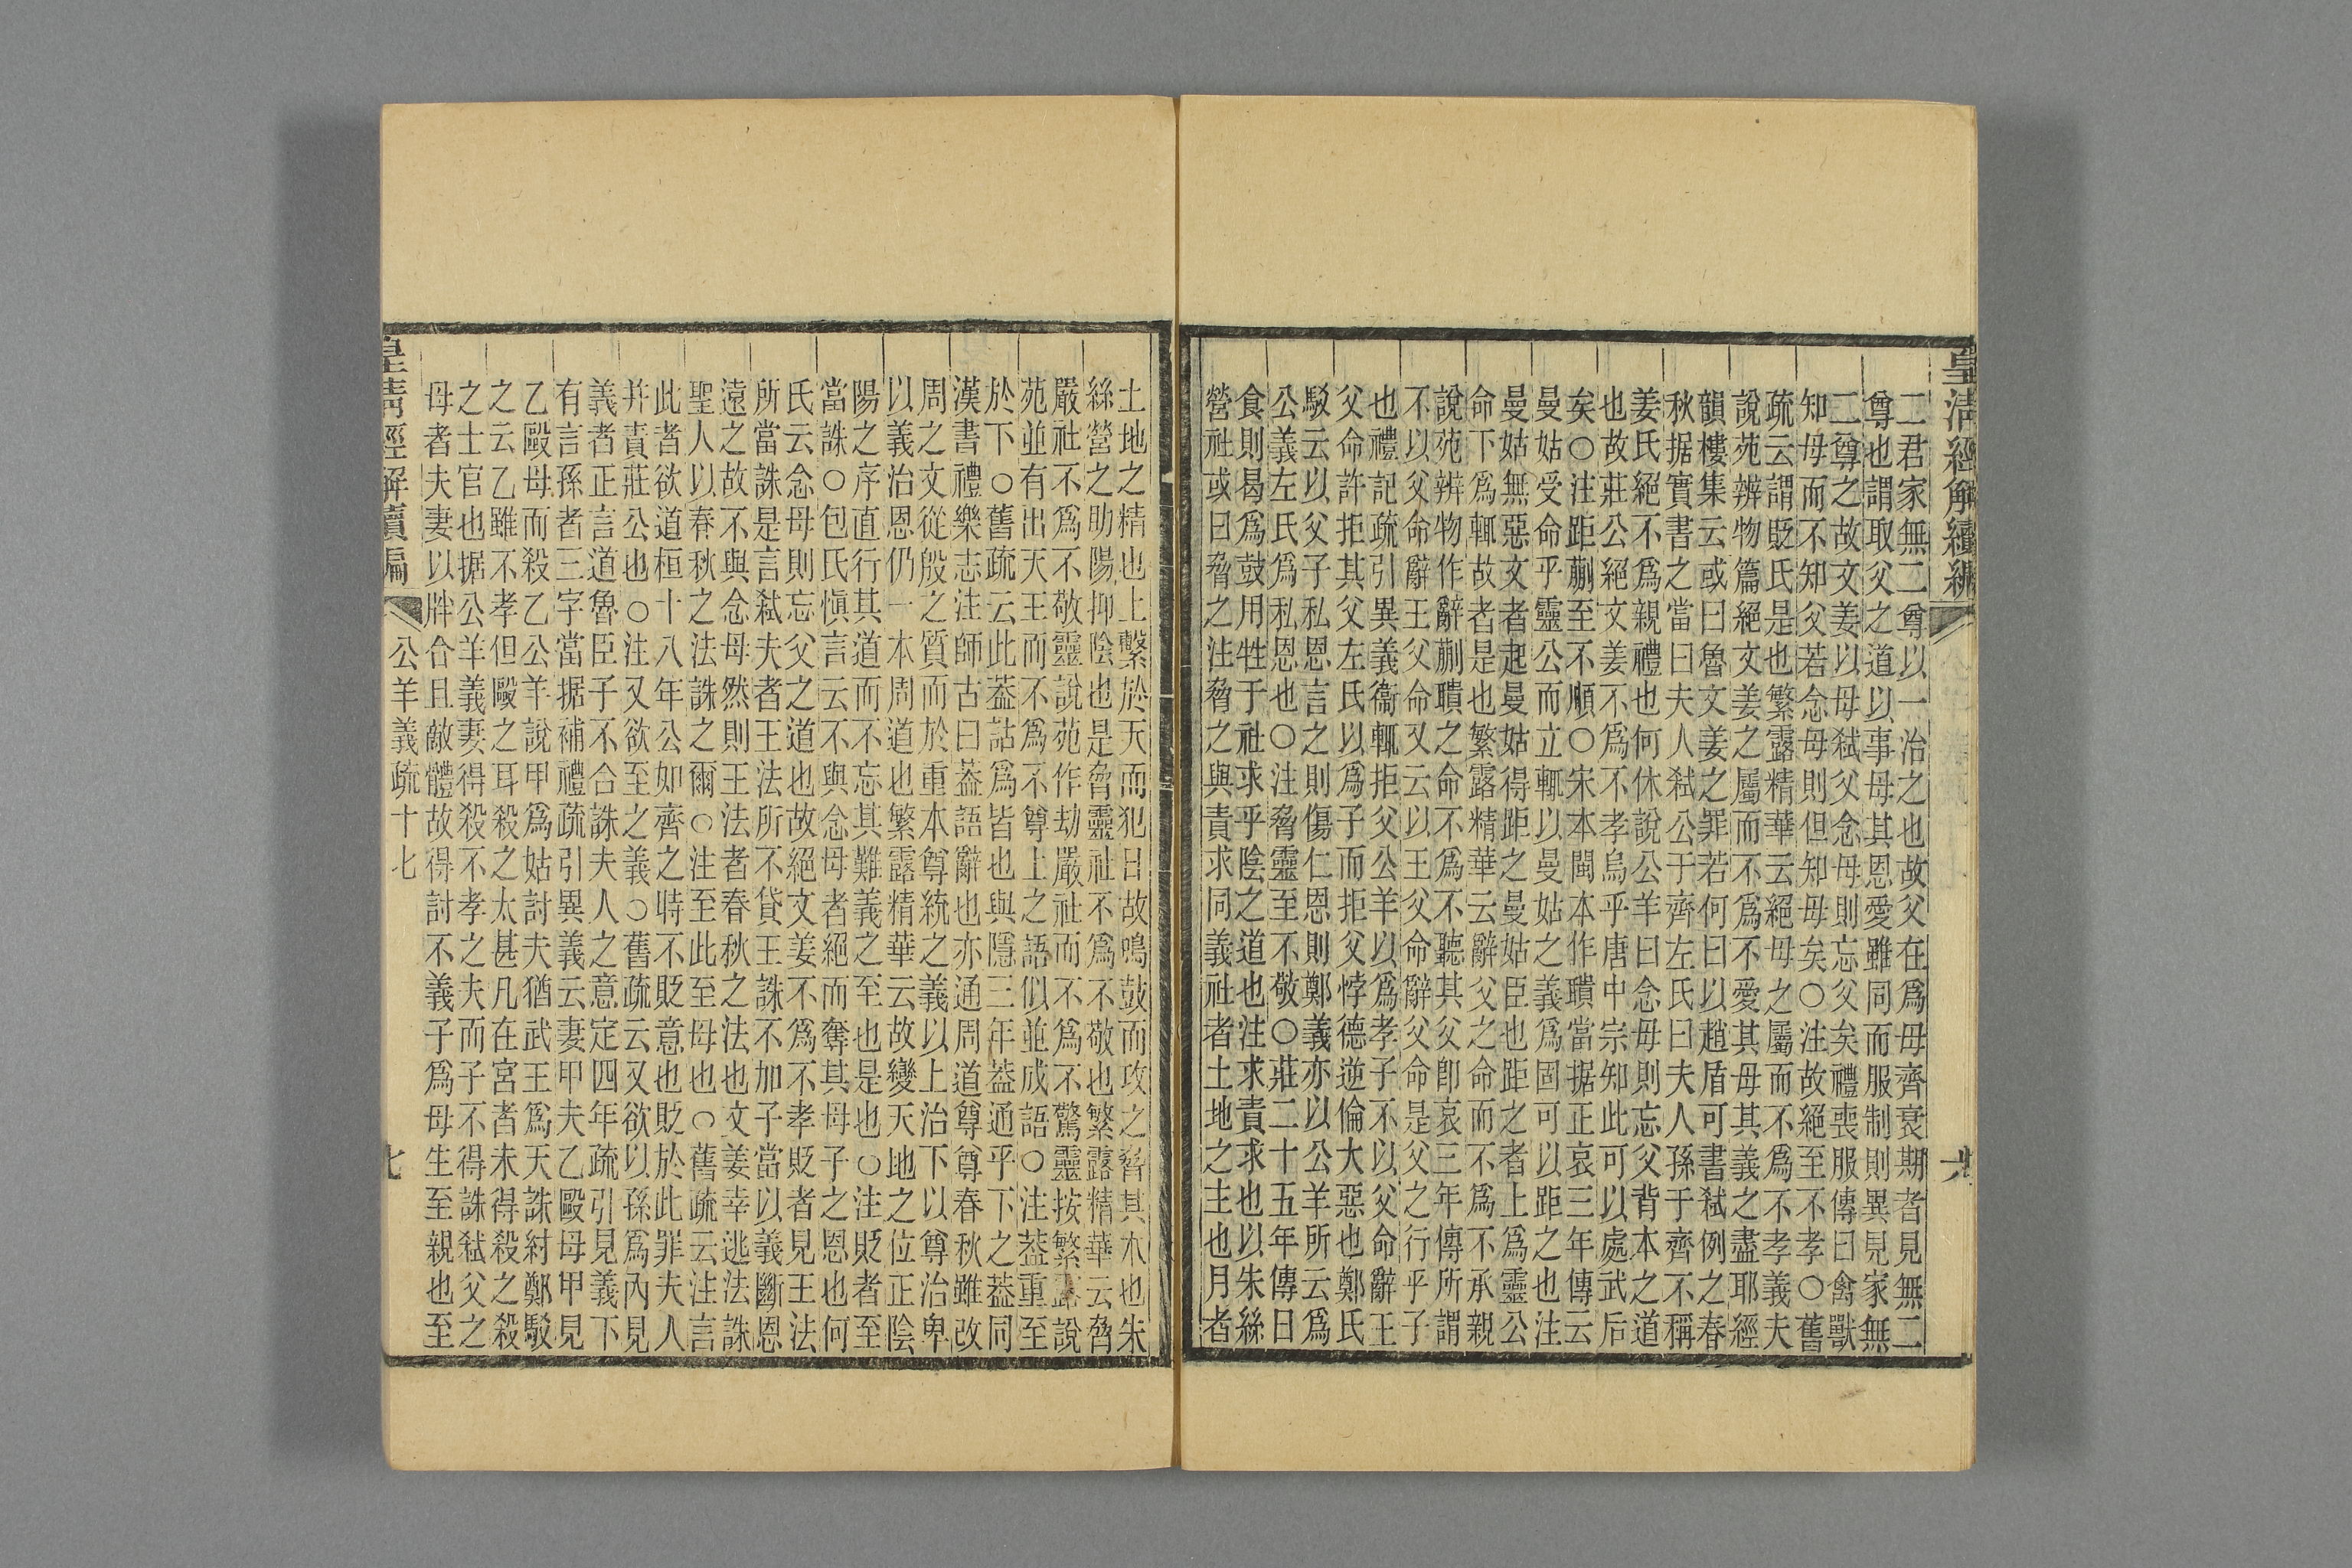 皇清經解續編
二君家無二尊以一治之也故父在爲母齊衰期者見無二
尊也謂取父之道以事母其恩愛雖同而服制則異見家無
二尊之故文姜以母弑父念母則忘父矣禮喪服傳曰禽獸
知母而不知父若念母則但知母矣○注故絕至不孝○舊
疏云謂貶氏是也繁露精華云絕母之屬而不爲不孝義夫
說苑辨物篇絕文姜之屬而不爲不愛其母其義之盡耶經
韻樓集云或曰魯文姜之罪若何曰以趙盾可書弑例之春
秋据實書之當曰夫人弑公于齊左氏曰夫人孫于齊不稱
姜氏絕不爲親禮也何休說公羊曰念母則忘父背本之道
也故莊公絕文姜不爲不孝烏乎唐中宗知此可以處武后
矣○注距蒯至不順○宋本閩本作聵當据正哀三年傳云
曼姑受命乎靈公而立輒以曼姑之義爲固可以距之也注
曼姑無惡文者起曼姑得距之曼姑臣也距之者上爲靈公
命下爲輒故者是也繁露精華云辭父之命而不爲不承親
說苑辨物作辭蒯聵之命不爲不聽其父卽哀三年傳所謂
不以父命辭王父命又云以王父命辭父命是父之行乎子
也禮記疏引異義衞輒拒父公羊以爲孝子不以父命辭王
父命許拒其父左氏以爲子而拒父悖德逆倫大惡也鄭氏
駁云以父子私恩言之則傷仁恩則鄭義亦以公羊所云爲
公義左氏爲私恩也○注脅靈至不敬○莊二十五年傳曰
食則曷爲鼓用牲于社求乎陰之道也注求責求也以朱絲
營社或曰脅之注脅之與責求同義社者土地之主也月者
土地之精也上繫於天而犯日故鳴鼓而攻之脅其本也朱
絲營之助陽抑陰也是脅靈社不爲不敬也繁露精華云脅
嚴社不爲不敬靈說苑作劫嚴社而不爲不驚靈按繁露說
苑並有出天王而不爲不尊上之語似並成語○注葢重至
於下○舊疏云此葢詁爲皆也與隱三年葢通乎下之葢同
漢書禮樂志注師古曰葢語辭也亦通周道尊尊春秋雖改
周之文從殷之質而於重本尊統之義以上治下以尊治卑
以義治恩仍一本周道也繁露精華云故變天地之位正陰
陽之序直行其道而不忘其難義之至也是也○注貶者至
當誅○包氏愼言云不與念母者絕而奪其母子之恩也何
氏云念母則忘父之道也故絕文姜不爲不孝貶者見王法
所當誅是言弑夫者王法所不貸王誅不加子當以義斷恩
遠之故不與念母然則王法者春秋之法也文姜幸逃法誅
聖人以春秋之法誅之爾○注至此至母也○舊疏云注言
此者欲道桓十八年公如齊之時不貶意也貶於此罪夫人
并責莊公也○注又欲至之義○舊疏云又欲以孫爲內見
義者正言道魯臣子不合誅夫人之意定四年疏引見義下
有言孫者三字當据補禮疏引異義云妻甲夫乙毆母甲見
乙毆母而殺乙公羊說甲爲姑討夫猶武王爲天誅紂鄭駁
之云乙雖不孝但毆之耳殺之太甚凡在宮者未得殺之殺
之士官也据公羊義妻得殺不孝之夫而子不得誅弑父之
母者夫妻以牉合且敵體故得討不義子爲母生至親也至
皇清經解續編
公羊義疏十七
七